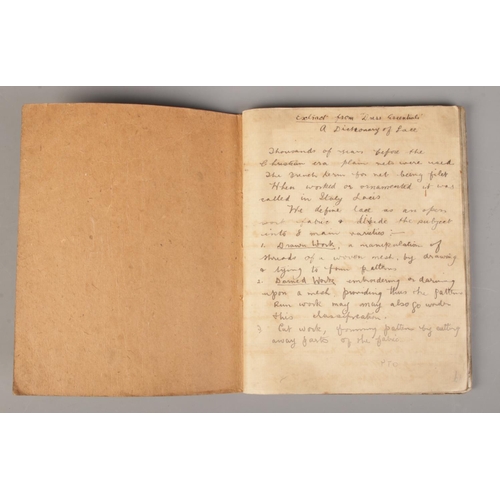 Extract from
A Dictionary of Lace
Thousands of years before the
Christian era plain nets were used
The French term for net being filet
When worked or ornamented it was
called in Italy Lacis
We define lace as an open
work fabric & divide the subject
into main varieties :-
1. Drawn Work, a manipulation of
threads of a woven mesh, by drawing
& tying to form pattern
2. Darned Work, embroidering or darning
upon a mesh, providing thus the pattern
Run work may also go under
this classification.
3 Cut work, forming pattern by cutting
away parts of the